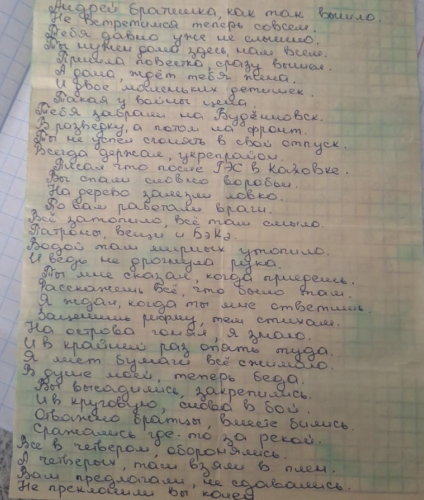 Андрей братишка, как так вышло.
Не встретимся теперь совсем.
Тебя давно уже не слышно.
Ты нужен дома здесь, нам всем.
Пришла повестка, сразу вышел.
А дома, ждёт тебя жена.
И двое маленьких детишек.
Такая у войны цена.
Тебя забрали на Будёновск.
В разведку, а потом на фронт.
Ты не успел сгонять в свой отпуск.
Всегда держал, укрепрайон.
Писал что после ГЭС в Каховке.
Вы спали словно воробьи.
На дерево залезли ловко.
По вам работали враги.
Всё затопило, всё там смыло.
Патроны, вещи и БэКа.
Водой там мирных утопило.
И ведь не дрогнула рука.
Ты мне сказал, когда приедешь.
Расскажешь всё, что было там.
Я ждал, когда ты мне ответишь
Запишешь рифму, тем стихам.
На острова гонял, я знаю.
И в крайний раз опять туда.
Я лист бумаги всё сжимаю.
В душе моей, теперь беда.
Вы высадились, закрепились.
И в круговую, снова в бой.
Отважно братцы, вместе бились.
Сражались где-то за рекой.
Все в четвером, оборонялись.
А четверых, там взяли в плен.
Вам предлогали, не сдавались.
Не преклонили вы колен